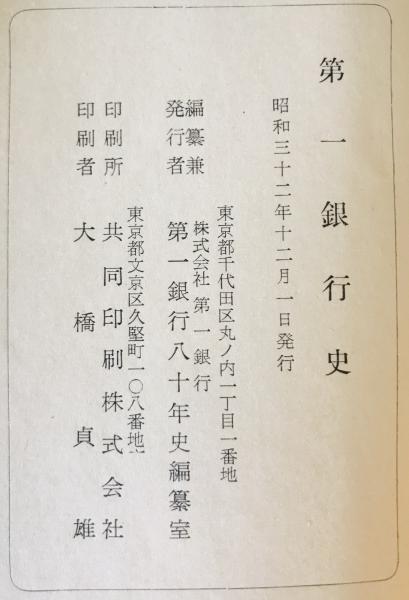 第一銀行史
昭和三十二年十二月一日発行
東京都千代田区丸ノ内一丁目一番地
株式会社 第一銀行
編纂兼
発行者 第一銀行八十年史編纂室
東京都文京区久堅町一〇八番地
印刷所 共同印刷株式会社
印刷者 大橋貞雄